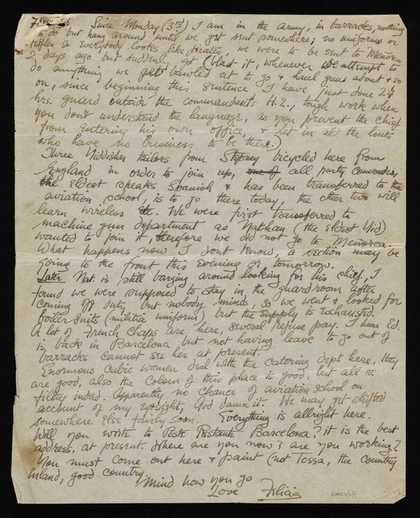 Since Monday (3rd) I am in the army, in barracks, nothing
to do but hang around until we get sent somewhere, no uniforms or
rifles & everybody looks like, we were to be sent to Menorca
2 days ago but suddenly got (blast it, whenever we attempt to
do anything we get bawled at to go & haul guns about & so
on, since beginning this sentence I have just done 2½
hrs. guard outside the commandant's H.Q., tough work when
you don't understand the language, to you prevent the chief
from entering his own office, & let in all the louts
who have no business to be there)
Three Yiddisher tailors from Stepney bicycled here from
England in order to join up, all party comrades,
the eldest speaks Spanish & has been transferred to the
aviation school, is to go there today, the other two will
learn wireless etc. We were first transferred to
machine gun department as Nathan (the eldest Yid)
wanted to join it, therefore we did not go to Menorca.
What happens now I don't know, a section may be
going to the front this evening or tomorrow.
Later Nat. is still barging around looking for his chief, I
found we were supposed to stay in the guardroom after
coming off duty, but nobody minded, so we went & looked for
boiler suits (militia uniform) but the supply is exhausted.
A lot of French chaps are here, several refuse pay. I hear Ed.
is back in Barcelona but not having leave to go out of
barracks cannot see her at present.
Enormous cubic women deal with the catering dept here, they
are good, also the colour of this place is good, but all is
filthy indeed. Apparently no chance of aviation school on
account of my eyesight, God damn it. We may get shifted
somewhere else fairly soon. Everything is allright here.
Will you write to Poste Restante Barcelona? it is the best
address, at present. Where are you now? are you working?
You must come out here & paint (not Tossa, the country
inland, good country.
Mind how you go
Love Felicia